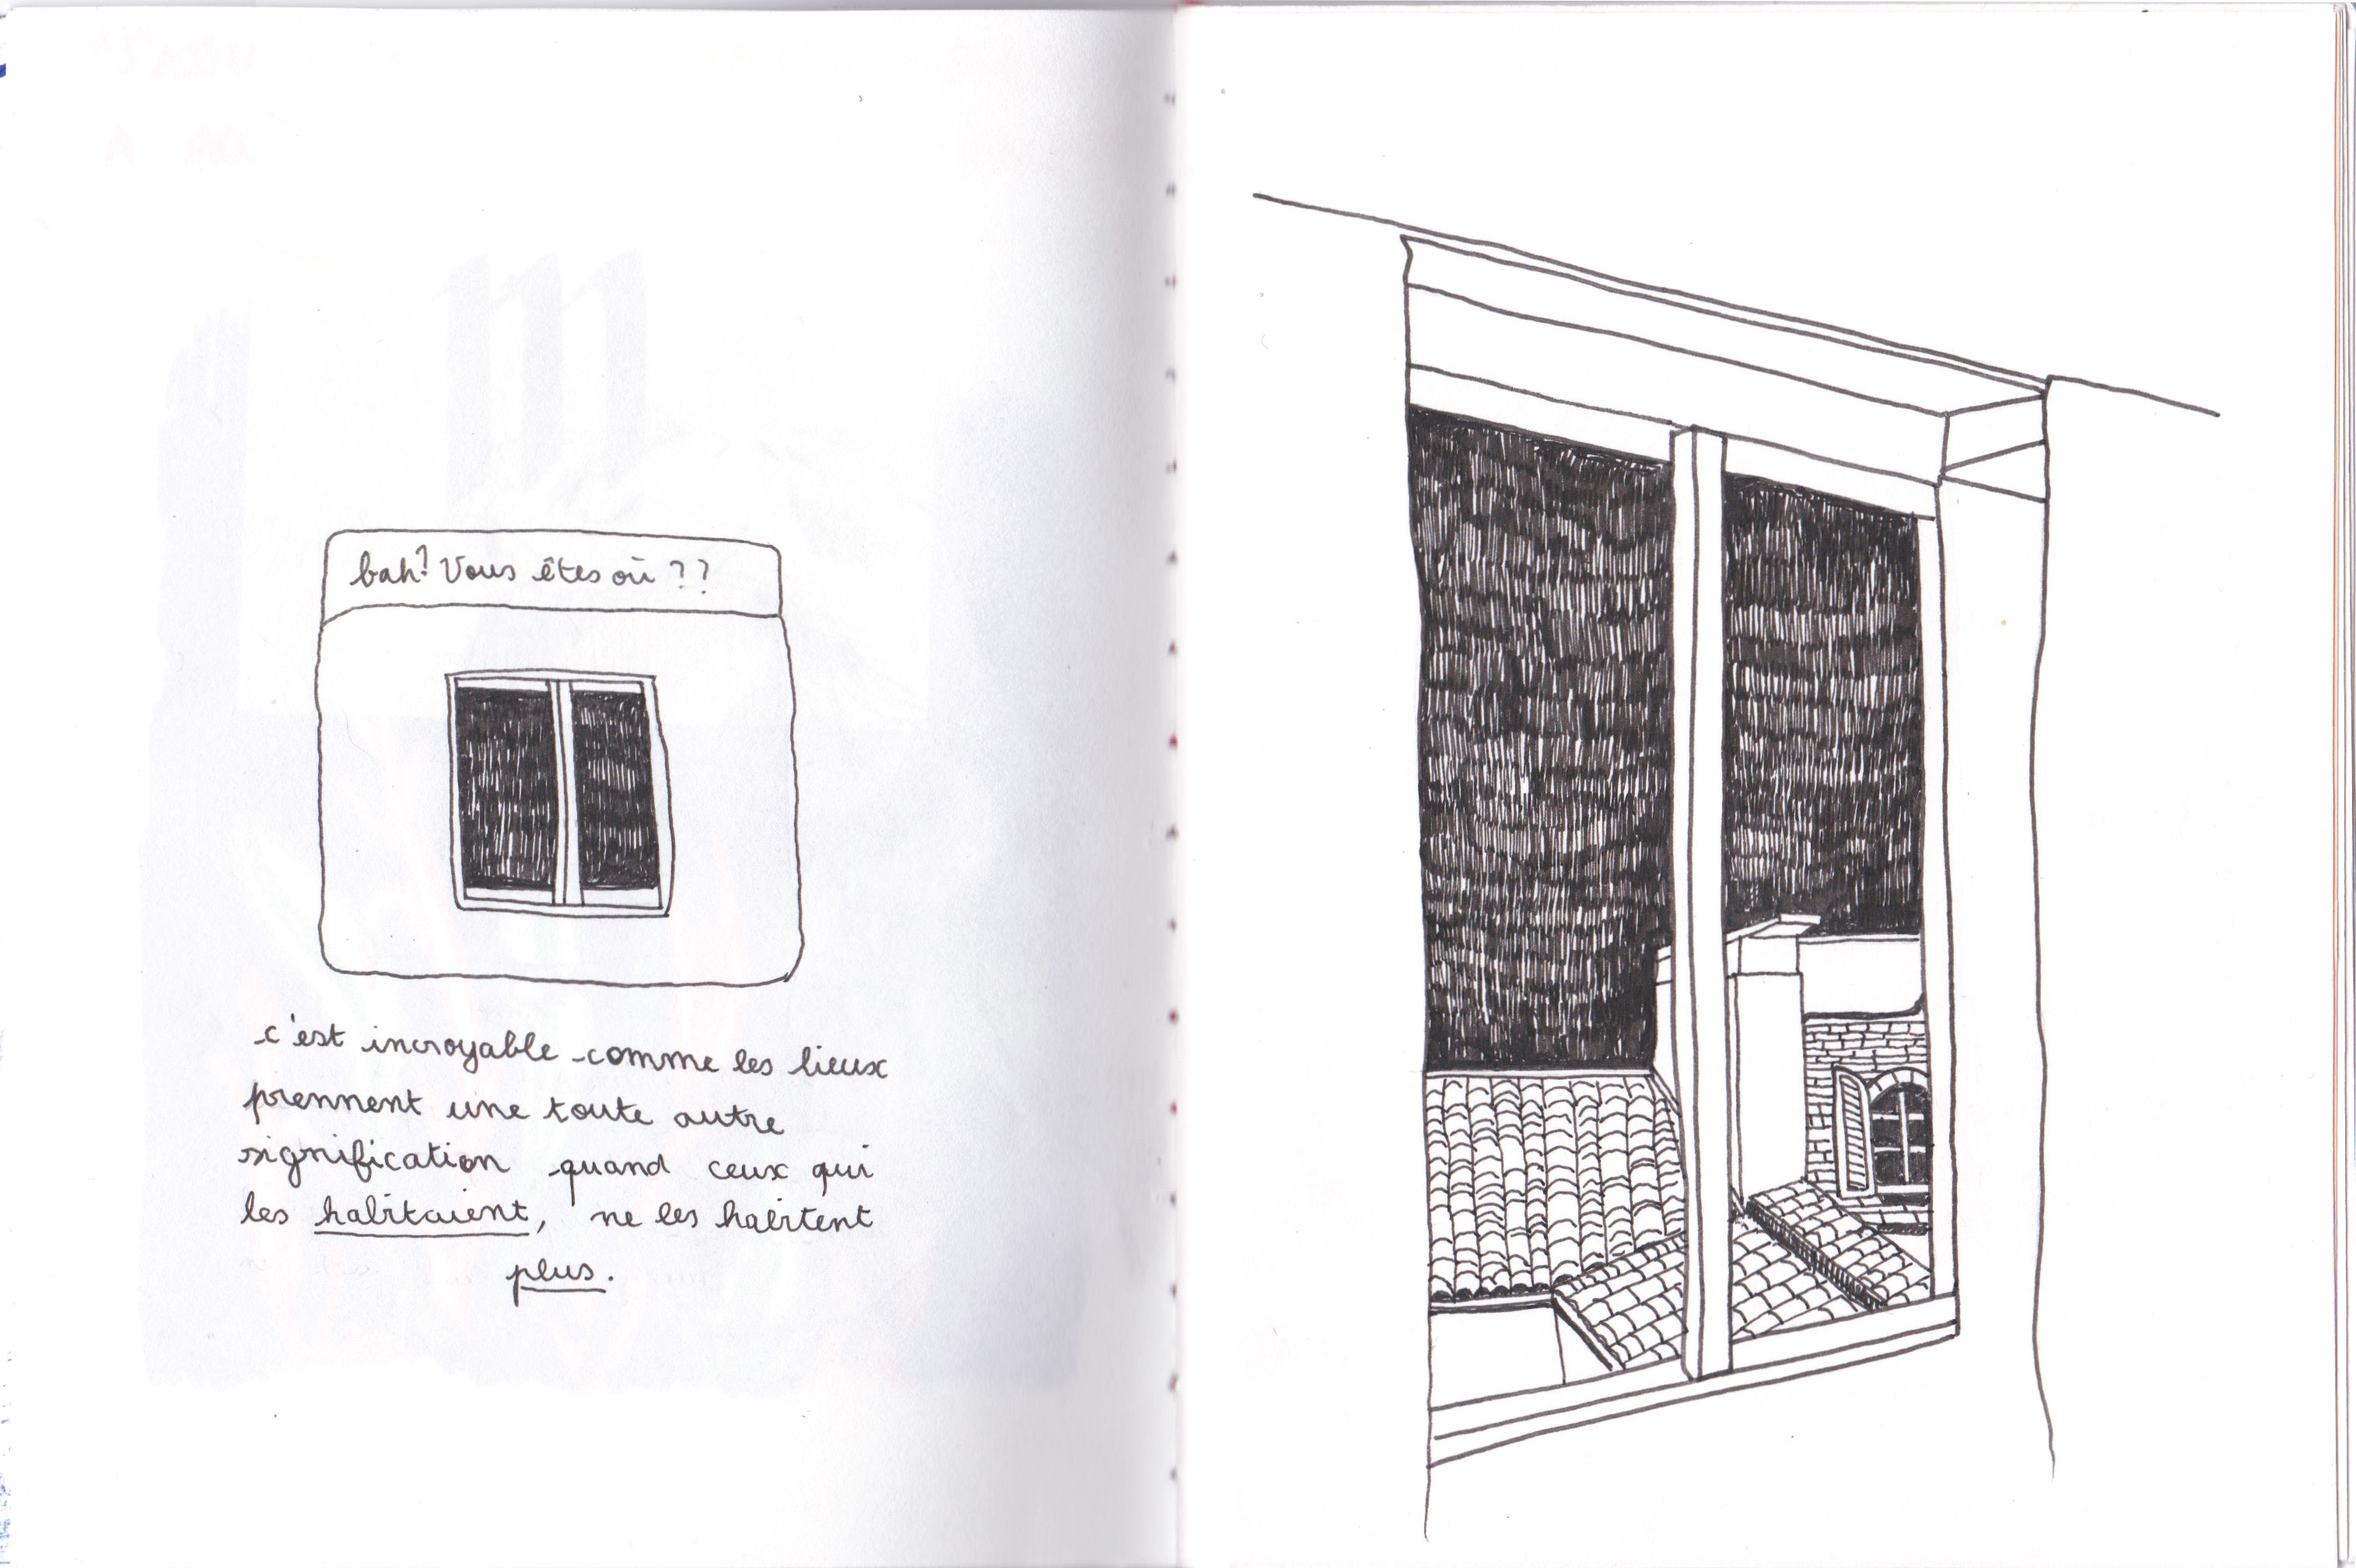 bah? Vous êtes où ??
c'est incroyable comme les lieux
prennent une toute autre
signification quand ceux qui
les habitaient, ne les habitent
plus.